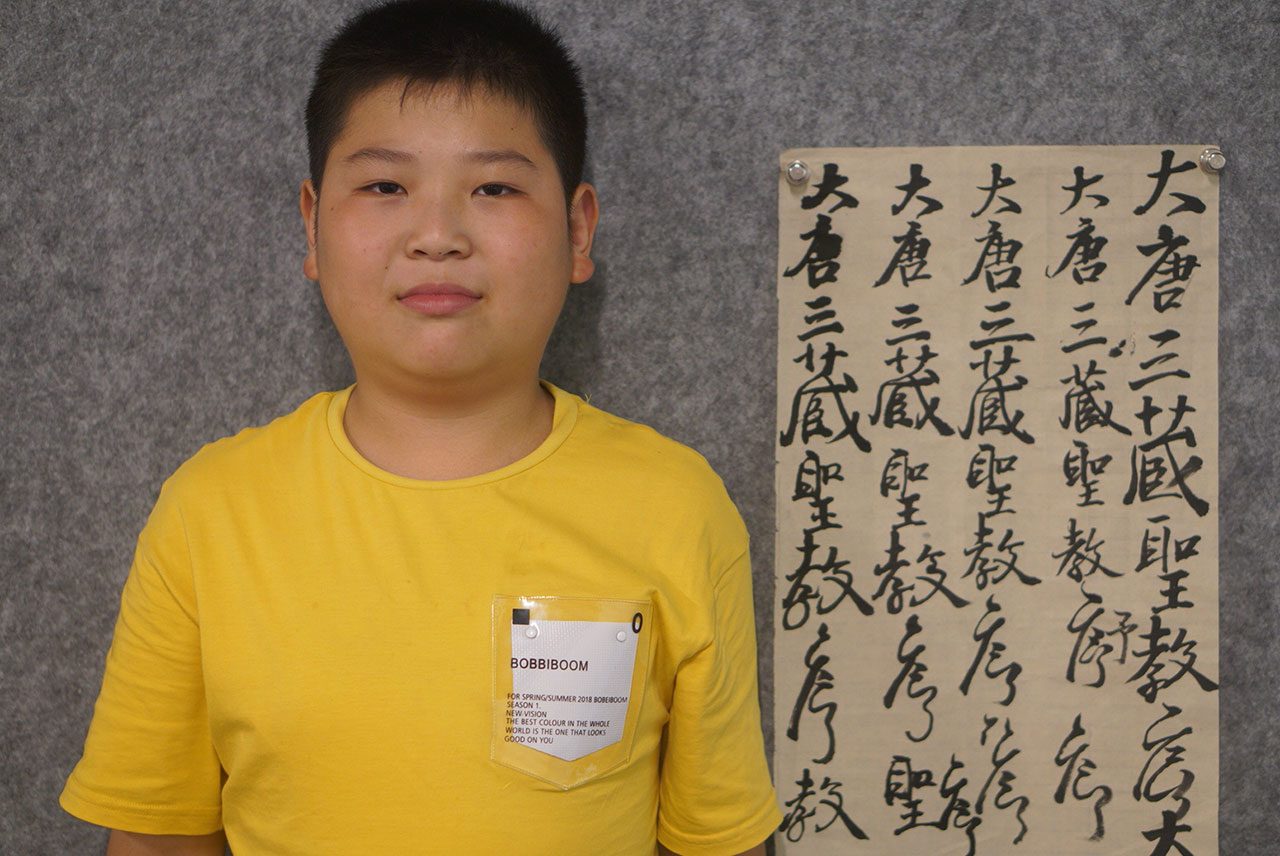 O
BOBBIBOOM
FOR SPRING/SUMMER 2018 BOBEIBOOM
SEASON 1.
NEW-VISION
THE BEST COLOUR IN THE WHOLE
WORLD IS THE ONE THAT LOOKS
GOOD ON YOU
大唐三藏聖教序大
大唐三藏聖教序序
予
大唐三藏聖教序序
大唐三藏聖教序聖
序
大唐三藏聖教序教